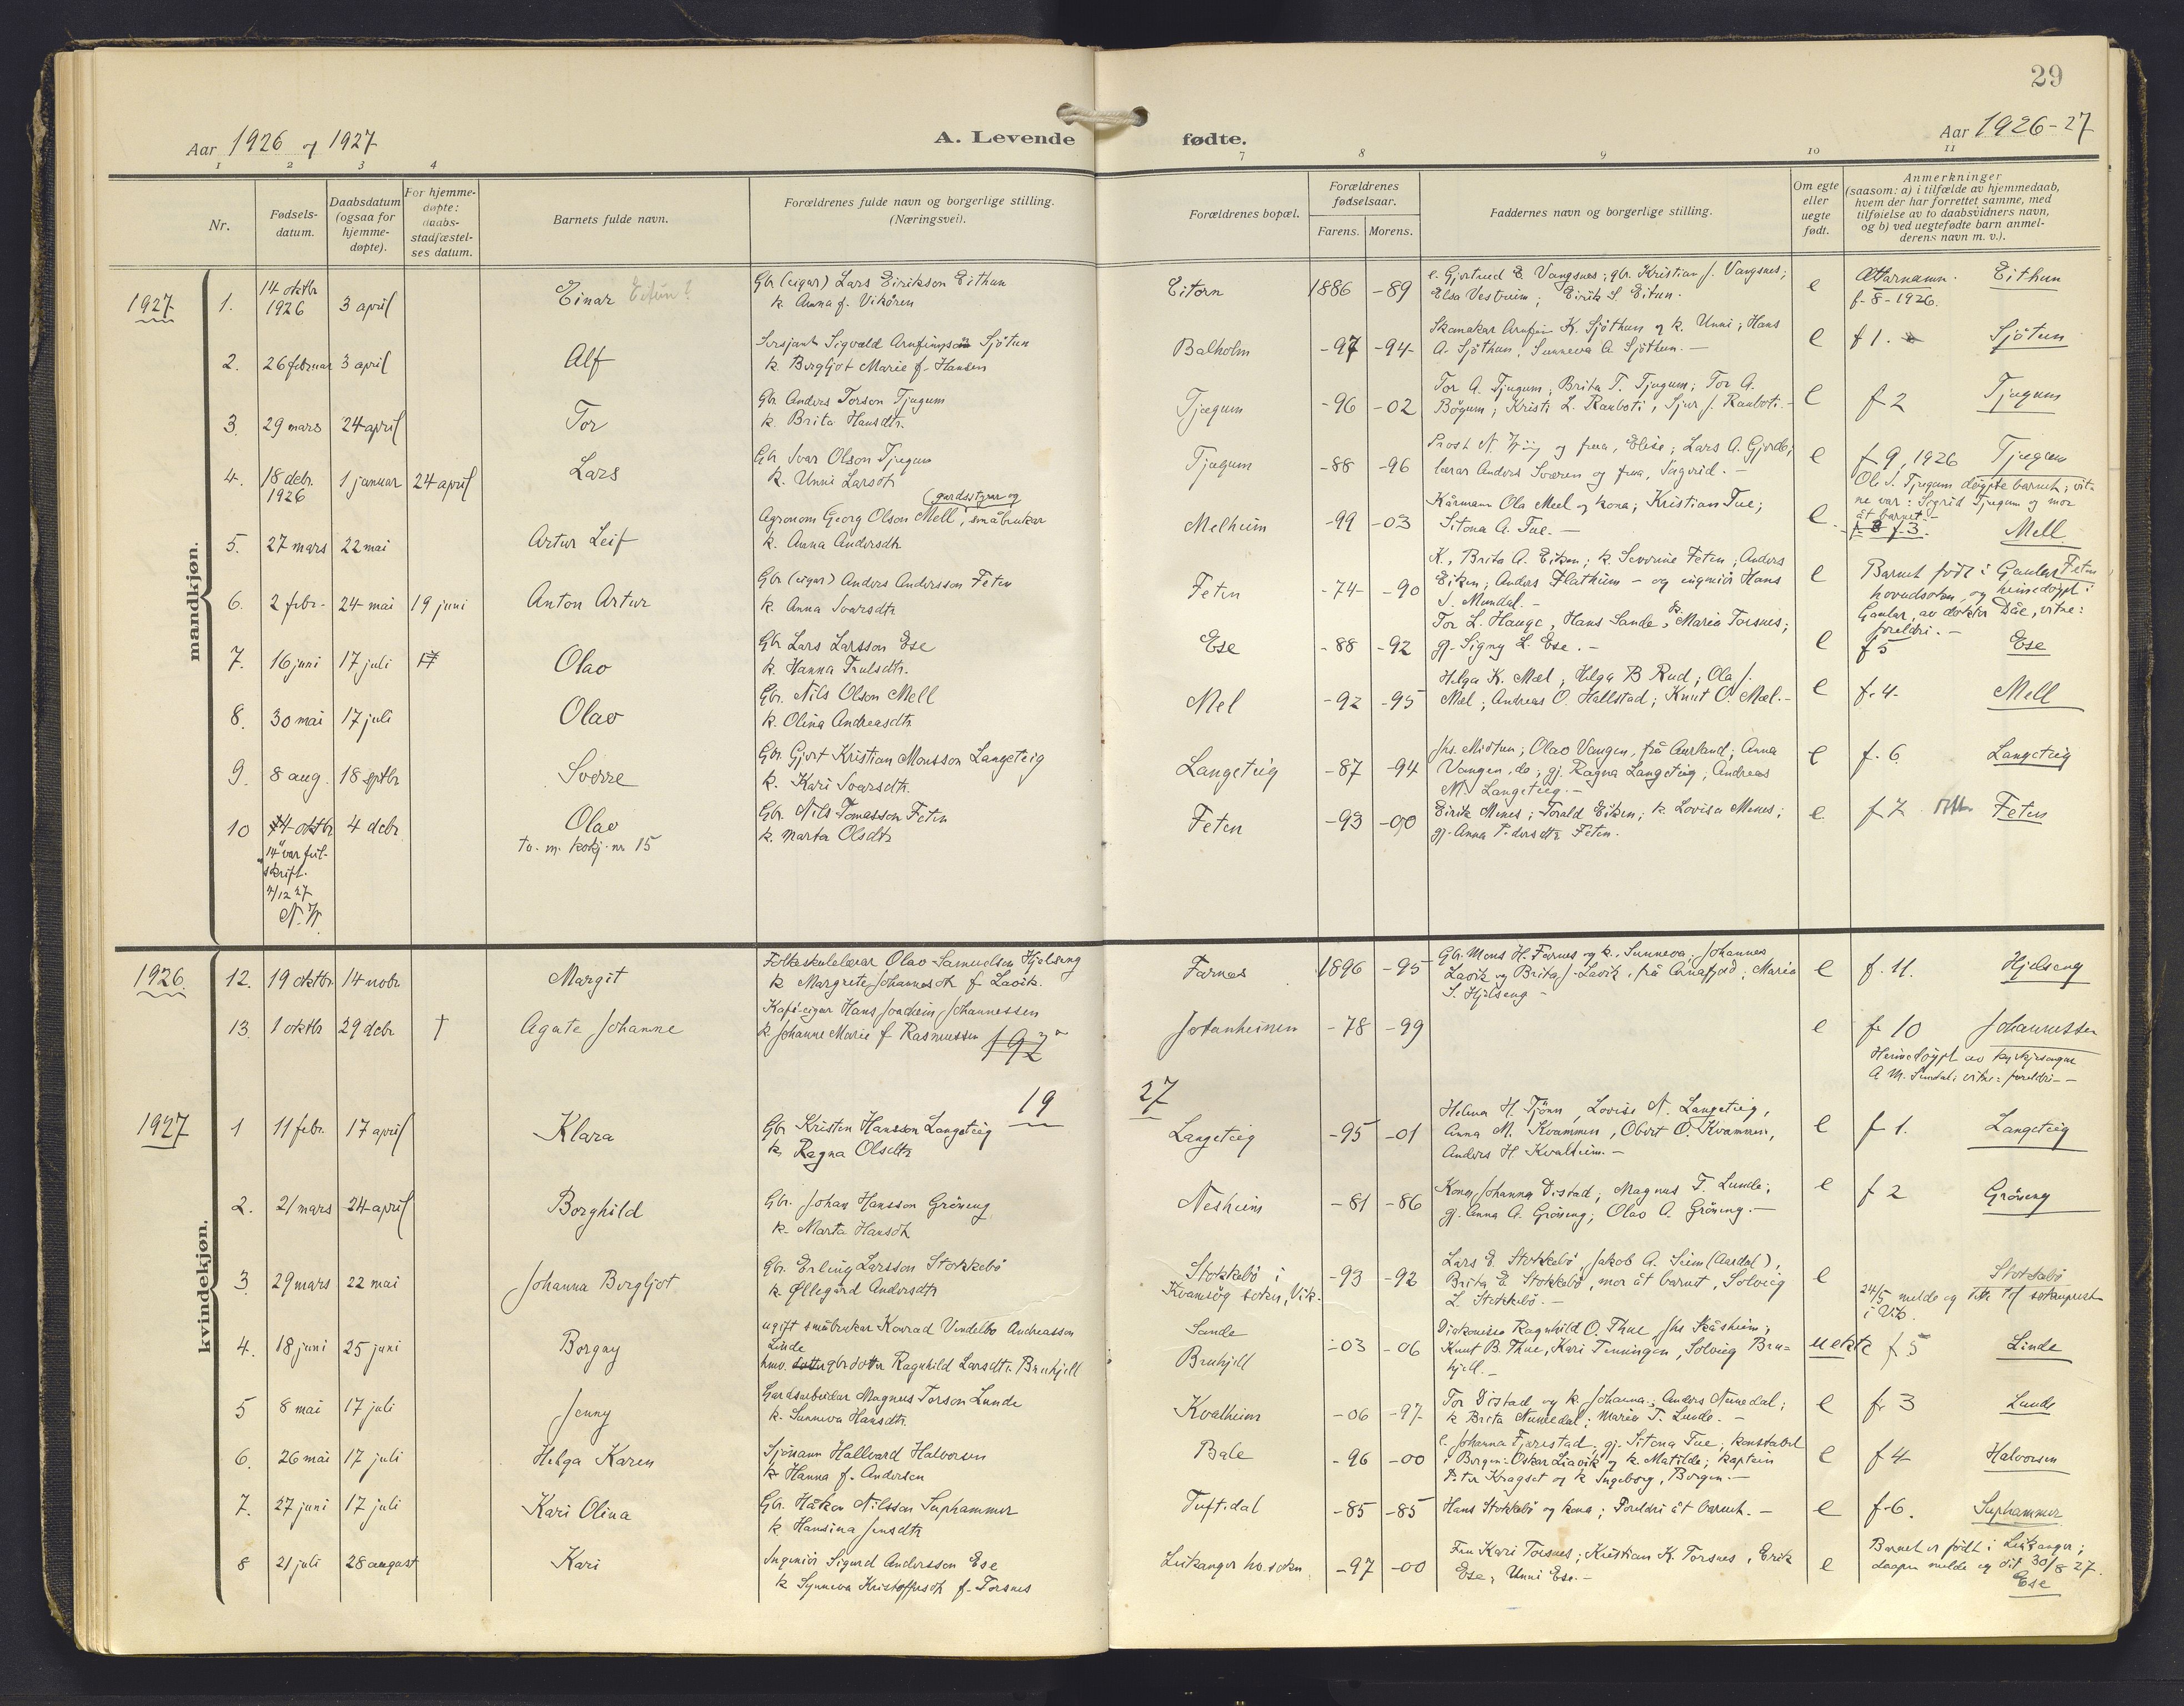 29
Aar 1926 og 1927
A. Levende fødte.
Aar 1926-27
1 2 3 4 7 8 9 10 11
Nr.
Fødsels-
datum.
Daabsdatum
(ogsaa for
hjemme-
døpte).
For hjemme-
døpte:
daabs-
stadfæstel-
ses datum.
Barnets fulde navn.
Forældrenes fulde navn og borgerlige stilling.
(Næringsvei).
Forældrenes bopæl.
Forældrenes
fødselsaar.
Farens. Morens.
Faddernes navn og borgerlige stilling.
Om egte
eller
uegte
født.
Anmerkninger
(saasom: a) i tilfælde av hjemmedaab,
hvem der har forrettet samme, med
tilføielse av to daabsvidners navn,
og b) ved uegtefødte barn anmel-
derens navn m. v.).
mandkjøn.
1927
1. 14 oktbr 1926 3 april Einar Eitun?
Gbr (eigar) Lars Eirikson Eithun
k. Anna f. Vikören
Eitorn 1886 -89
e. Gjertrud E. Vangsnes; gbr. Kristian J. Vangsnes;
Elsa Vestreim; Eirik S. Eitun.
e Ættarnamn. Eithun
f-8-1926.
2. 26 februar 3 april Alf
Sersjant Sigvald Arnfinnson Sjötun
k. Bergljot Marie f. Hansen
Balholm -97 -94-
Skomakar Arnfin K. Sjöthun og k. Unni; Hans
A. Sjöthun; Sunneva A. Sjöthun. -
e f 1. Sjötun
3. 29 mars 24 april Tor
Gbr Anders Torson Tjugum
k. Brita Hansdtr.
Tjugum -96 -02
Tor A. Tjugum; Brita T. Tjugum; Tor A.
Böyum; Kristi L. Rauboti, Sjur J. Rauboti. -
e f 2 Tjugum
4. 18 debr. 1926 1 januar 24 april Lars
Gbr Ivar Olson Tjugum
k. Unni Larsdtr
Tjugum -88 -96
Prost N. Wiig og frua, Elise; Lars A. Gjerde;
lærar Anders Sværen og frua, Ingerid. -
e f 9, 1926 Tjugum
Ole I. Tjugum døypte barnet; vit-
ne var: Sigrid Tjugum og mor
åt barnet. -
5. 27 mars 22 mai Artur Leif
(gardsstyrar og
Agronom Georg Olson Mell, småbrukar
k. Anna Andersdtr
Melheim -99 -03
Kårmann Ola Meel og kona; Kristian Tue;
Sitona A. Tue. -
e. f 3. Mell
6. 2 febr. 24 mai 19 juni Anton Artur
Gbr (eigar) Anders Andersson Feten
k. Anna Ivarsdtr
Feten -74- -90
K., Brita A. Eiken; k. Severine Feten; Anders
Eiken; Anders Flatheim - og ingeniör Hans
S. Mundal. -
e Barnet født i Gaular Feten
hovudsokn, og heimedøypt i
Gaular, av doktor Dåe, vitne:
foreldri. -
7. 16 juni 17 juli 17 Olav
Gbr Lars Larsson Ese
k. Hanna Trulsdtr.
Ese -88 -92
Tor L. Hauge, Hans Sande, Maria Torsnes;
gj. Signy L. Ese. -
e f 5 Ese
8. 30 mai 17 juli Olav
Gbr. Nils Olson Mell
k. Olina Andreasdtr
Mel -92 -95
Helga K. Mæl; Helga B Rud; Ola J.
Mæl; Andreas O. Hallstad; Knut O. Mæl. -
e f. 4. Mell
9. 8 aug. 18 septbr Sverre
Gbr. Gjert Kristian Monsson Langeteig
k. Kari Ivarsdtr.
Langeteig -87 -94
Jhs. Midtun; Olav Vangen, frå Aurland; Anna
Vangen, do; gj. Ragna Langeteig; Andreas
M. Langeteig. -
e f. 6. Langeteig
10 4 oktbr 4 debr Olav
Tv. m. kvkj. nr 15
Gbr. Nils Tomasson Feten
k. Marta Olsdtr
Feten -93 -00
Eirik Menes; Torald Eiken; k. Lovisa Menes;
gj. Anna P. dersdtr Feten.
e. f 7 Feten
"14" var feil-
skrift.
4/12 27
N. W.
kvindekjøn.
1926
12. 19 oktbr 14 nobr Margit
Folkeskulelærar Olav Samuelson Hjelseng
k Margrete Johannesdtr f. Lavik.
Farnes 1896 -95
Gbr. Mons H. Farnes og k., Sunneva; Johannes
Lavik og Brita J. Lavik, frå Arnafjord; Maria
S. Hjelseng -
e f. 11. Hjelseng
13. 1 oktbr 29 debr † Agate Johanne
Kafé-eigar Hans Joachim Johannessen
k. Johanne Marie f Rasmussen
Jotunheimen -78 -99
e fr 10 Johannessen
Heimedøypt av
A M. Sundal; vitne: foreldri - -
1927 19 27
1 11 febr. 17 april Klara
Gbr Kristen Hansson Langeteig
k. Ragna Olsdtr
Langeteig -95 -01
Helena H. Tjönn, Lovise N. Langeteig,
Anna M. Kvammen, Obert O. Kvammen,
Anders H. Kvalheim. -
e f 1. Langeteig
2. 21 mars 24 april Borghild
Gbr. Johan Hansson Gröneng
k. Marta Hansdtr
Nesheim -81 -86
Kona Johanna Distad; Magnus T. Lunde;
gj. Anna A. Gröneng; Olav A. Gröneng. -
e f 2 Gröneng
3. 29 mars 22 mai Johanna Bergljot
Gbr. Erling Larsson Stokkebö
k. Øllegård Andersdtr
Stokkebö i
Kvamsöy sokn, Vik. -93 -92
Lars E. Stokkebö, Jakob A. Seim (Aardal),
Brita E. Stokkebö, mor åt barnet, Solveig
L. Stokkebö. -
e Stokkebö
24/5 melde eg dette til soknaprest
i Vik.
4. 18 juni 25 juni Borgny
ugift småbrukar Konrad Vendelbo Andreasson
Linde
hmv. gbrdotter Ragnhild Larsdtr. Bruhjell
Sande
Bruhjell -03 -06
Diakonisse Ragnhild O. Thue, Jhs Skåsheim;
Knut B. Thue, Kari Tenningen, Solveig Bru-
hjell. -
uekte f 5 Linde
5 8 mai 17 juli Jenny
Gardsarbeidar Magnus Torson Lunde
k. Sunneva Hansdtr.
Kvalheim -06 -97
Tor Distad og k. Johanna; Anders Numedal;
k Brita Numedal; Maria T. Lunde. -
e fr 3 Lunde
6. 26 mai 17 juli Helga Karen
Sjömann Hallvard Halvorsen
k Hanna f. Andersen
Bale -96 -00
e. Johanna Fjærestad; gj. Sitona Tue; konstabel
i Bergen: Oskar Liavik og k. Matilde; kaptein
Peter Kragset og k Ingeborg, Bergen. -
e f 4 Halvorsen
7. 27 juni 17 juli Kari Olina
Gbr. Håkon Nilsson Suphammer
k Hansina Jensdtr
Tuftedal -85 -85
Hans Stokkebö og kona; Foreldri åt barnet. -
e f-6. Suphammer
8 21 juli 28 august Kari
Ingeniör Sigurd Andersson Ese
k Synneva Kristoffersdtr f. Torsnes
Leikanger ho. sokn. -97 -00
Fru Kari Torsnes; Kristian K. Torsnes, Erik
Ese, Unni Ese. -
e Barnet er fødd i Leikanger;
daapen melde eg dit 30/8 27.
Ese